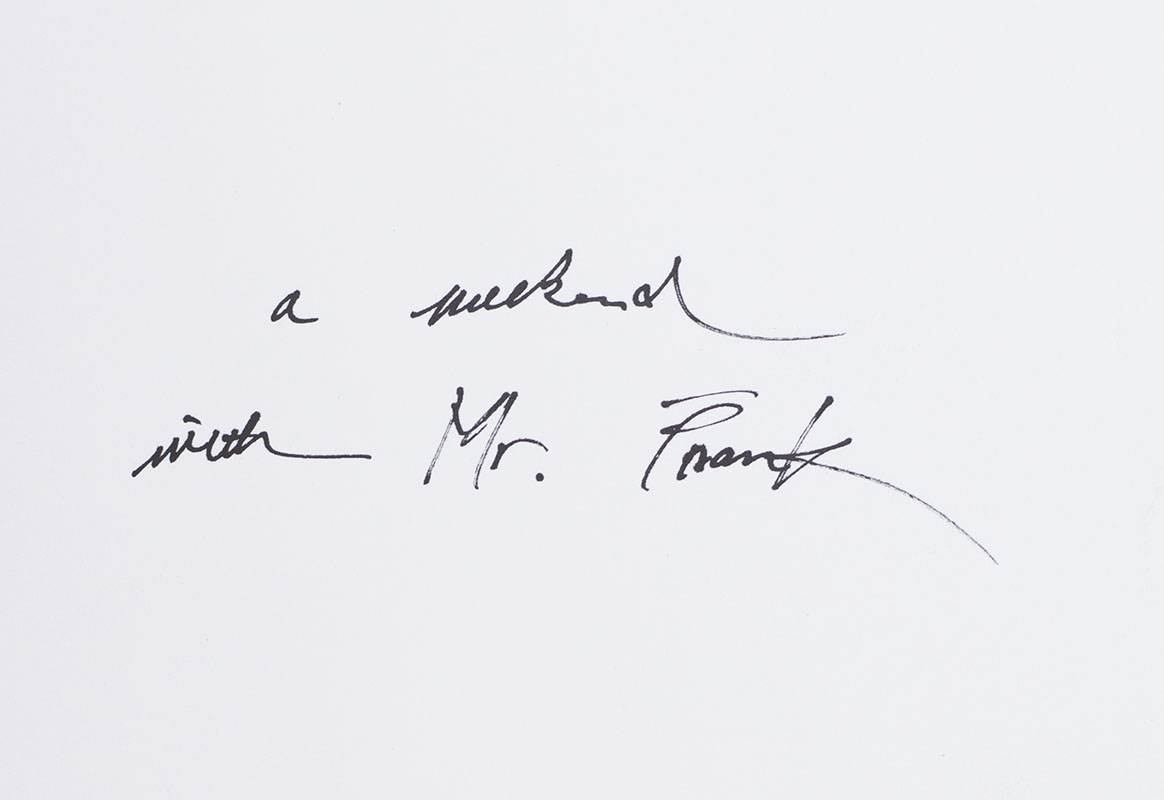 a weekend
with Mr. Frank